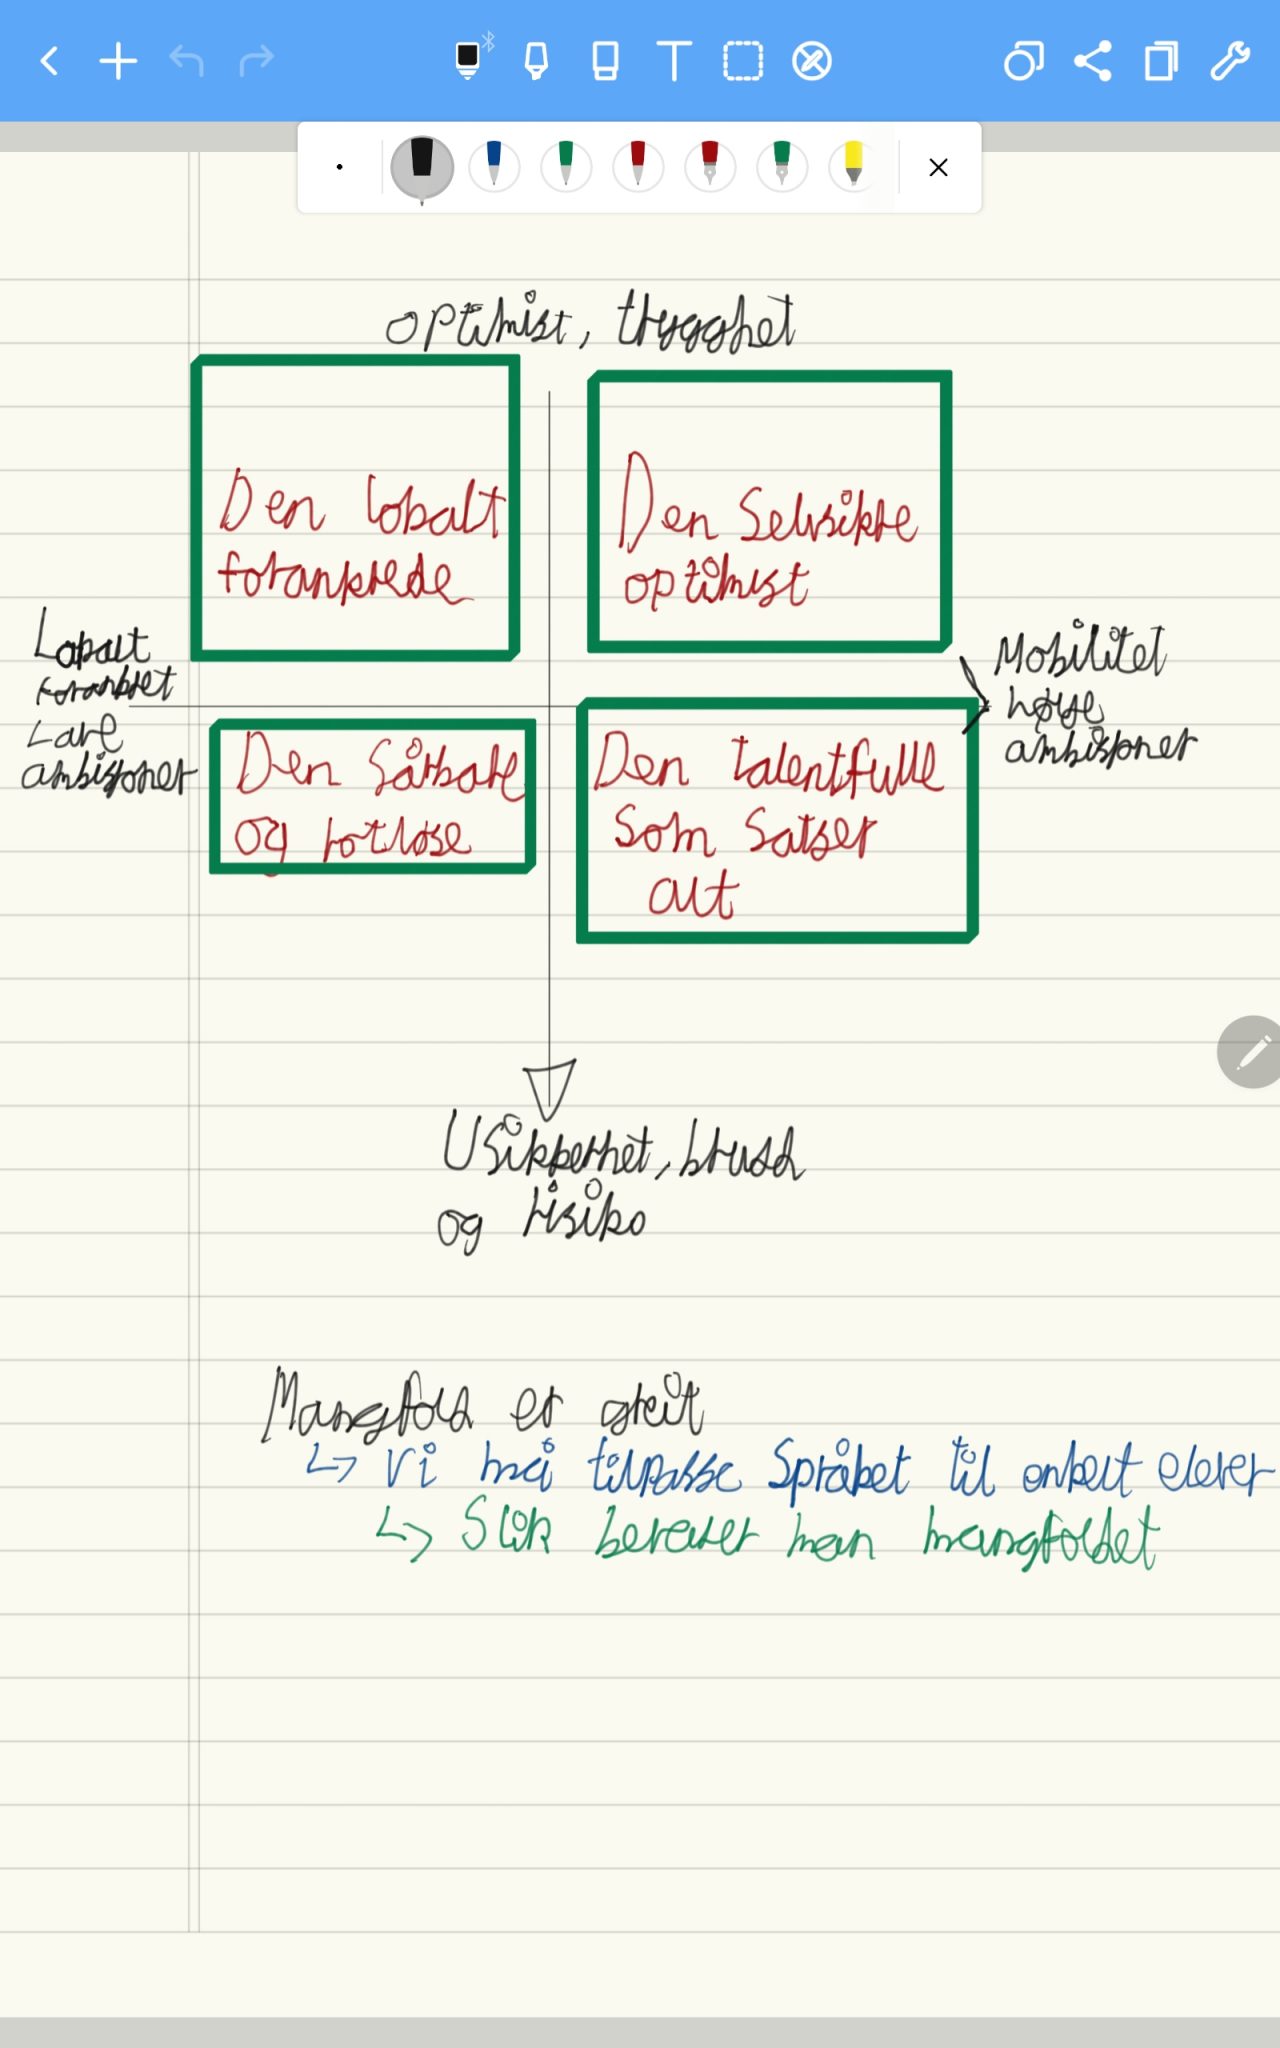 optimist, trygghet
Den lokalt
forankrede
Den Selvsikre
optimist
Lokalt
forankret
Lave
ambisjoner
Mobilitet
høye
ambisjoner
Den Sårbare
og rotløse
Den talentfulle
Som Satser
alt
Usikkerhet, brudd
og risiko
Mangfold er greit
↳ Vi må tilpasse Språket til enkelt elever
↳ Slik bevarer man mangfoldet